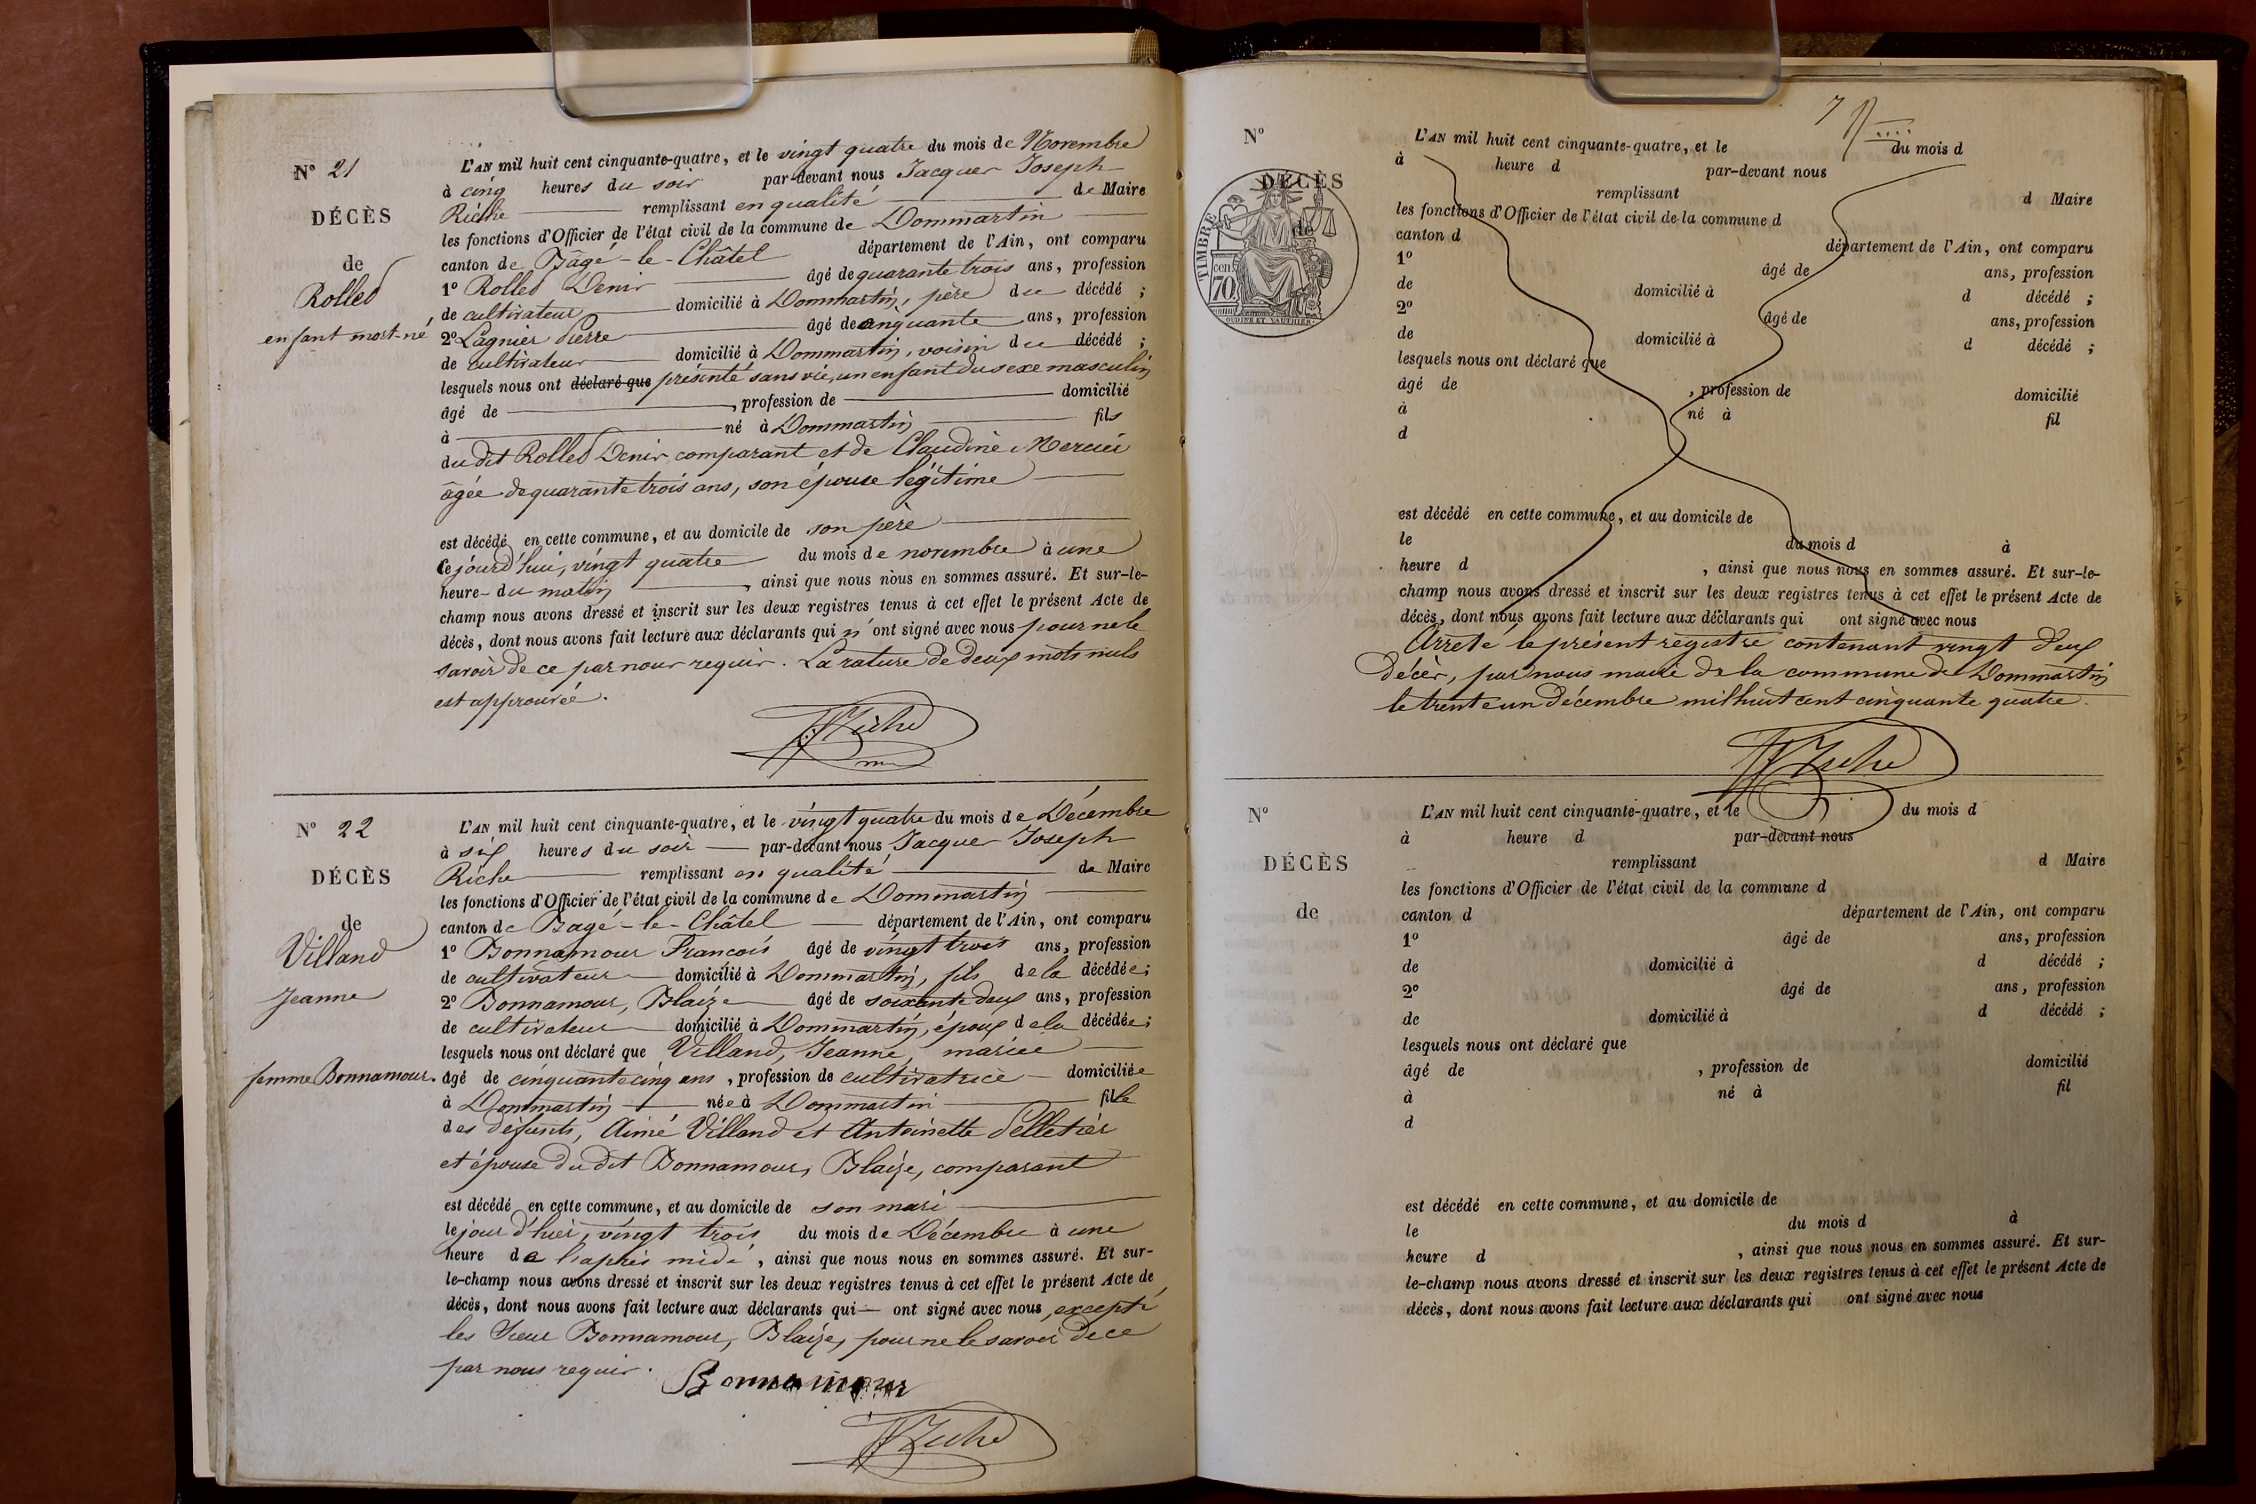 N° 21
DÉCÈS
de
Rollet
enfant mort-né
L'AN mil huit cent cinquante-quatre, et le vingt quatre du mois de Novembre
à cinq heures du soir par-devant nous Jacques Joseph
Riche remplissant en qualité de Maire
les fonctions d'Officier de l'état civil de la commune de Dommartin
canton de Bâgé-le-Châtel département de l'Ain, ont comparu
1° Rollet Denis âgé de quarante trois ans, profession
de cultivateur domicilié à Dommartin, père du décédé ;
2° Lagnier Pierre âgé de cinquante ans, profession
de cultivateur domicilié à Dommartin, voisin du décédé ;
lesquels nous ont déclaré que présenté sans vie, un enfant du sexe masculin
âgé de , profession de domicilié
à né à Dommartin fils
du dit Rollet Denis comparant et de Claudine Mercier
âgée de quarante trois ans, son épouse légitime
est décédé en cette commune, et au domicile de son père
Cejourd'hui, vingt quatre du mois de novembre à une
heure du matin , ainsi que nous nous en sommes assuré. Et sur-le-
champ nous avons dressé et inscrit sur les deux registres tenus à cet effet le présent Acte de
décès, dont nous avons fait lecture aux déclarants qui n'ont signé avec nous pour ne le
savoir de ce par nous requis. La rature de deux mots nuls
est approuvée.
JJRiche
N° 22
DÉCÈS
de
Villand
Jeanne
femme Bonnamour.
L'AN mil huit cent cinquante-quatre, et le vingt quatre du mois de Décembre
à six heures du soir par-devant nous Jacques Joseph
Riche remplissant en qualité de Maire
les fonctions d'Officier de l'état civil de la commune de Dommartin
canton de Bagé-le-Châtel département de l'Ain, ont comparu
1° Bonnamour Francois âgé de vingt trois ans, profession
de cultivateur domicilié à Dommartin, fils de la décédée ;
2° Bonnamour, Blaize âgé de soixante deux ans, profession
de cultivateur domicilié à Dommartin, époux de la décédée ;
lesquels nous ont déclaré que Villand, Jeanne, mariée
âgé de cinquante cinq ans, profession de cultivatrice domiciliée
à Dommartin née à Dommartin fille
des défunts, Aimé Villand et Antoinette Pelletier
et épouse du dit Bonnamour, Blaize, comparant
est décédé en cette commune, et au domicile de son mari
le jour d'hier, vingt trois du mois de Décembre à une
heure de l'après midi, ainsi que nous nous en sommes assuré. Et sur-
le-champ nous avons dressé et inscrit sur les deux registres tenus à cet effet le présent Acte de
décès, dont nous avons fait lecture aux déclarants qui ont signé avec nous, excepté
les Sieur Bonnamour, Blaize, pour ne le savoir de ce
par nous requis.
Bonnamour
JJRiche
7
N°
DÉCÈS
de
TIMBRE
cen.
70
OUDINE ET VAUTHIER
L'AN mil huit cent cinquante-quatre, et le du mois d
à heure d par-devant nous
remplissant d Maire
les fonctions d'Officier de l'état civil de la commune d
canton d département de l'Ain, ont comparu
1° âgé de ans, profession
de domicilié à d décédé ;
2° âgé de ans, profession
de domicilié à d décédé ;
lesquels nous ont déclaré que
âgé de , profession de domicilié
à né à fil
d
est décédé en cette commune, et au domicile de
le du mois d à
heure d , ainsi que nous nous en sommes assuré. Et sur-le-
champ nous avons dressé et inscrit sur les deux registres tenus à cet effet le présent Acte de
décès, dont nous avons fait lecture aux déclarants qui ont signé avec nous
Arrêté le présent registre contenant vingt deux
décès, par nous maire de la commune de Dommartin
le trente un décembre mil huit cent cinquante quatre.
JJRiche
N°
DÉCÈS
de
L'AN mil huit cent cinquante-quatre, et le du mois d
à heure d par-devant nous
remplissant d Maire
les fonctions d'Officier de l'état civil de la commune d
canton d département de l'Ain, ont comparu
1° âgé de ans, profession
de domicilié à d décédé ;
2° âgé de ans, profession
de domicilié à d décédé ;
lesquels nous ont déclaré que
âgé de , profession de domicilié
à né à fil
d
est décédé en cette commune, et au domicile de
le du mois d à
heure d , ainsi que nous nous en sommes assuré. Et sur-
le-champ nous avons dressé et inscrit sur les deux registres tenus à cet effet le présent Acte de
décès, dont nous avons fait lecture aux déclarants qui ont signé avec nous